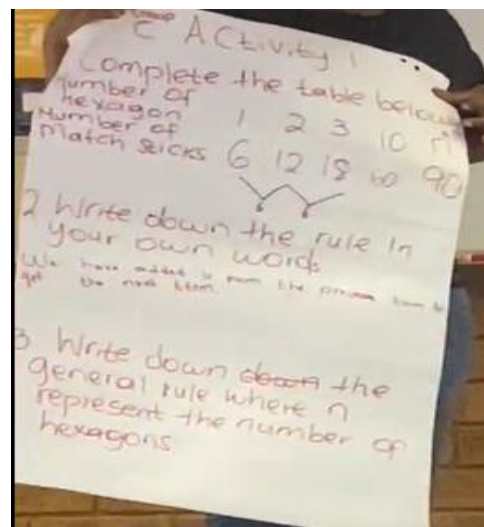 C Activity 1
Complete the table below
Number of
hexagon 1 2 3 10 n
Number of
Match sticks 6 12 18 60 90
6 6
2 Write down the rule in
your own words
We have added 6 from the previous term to
get the next term
3 Write down the
general rule where n
represent the number of
hexagons